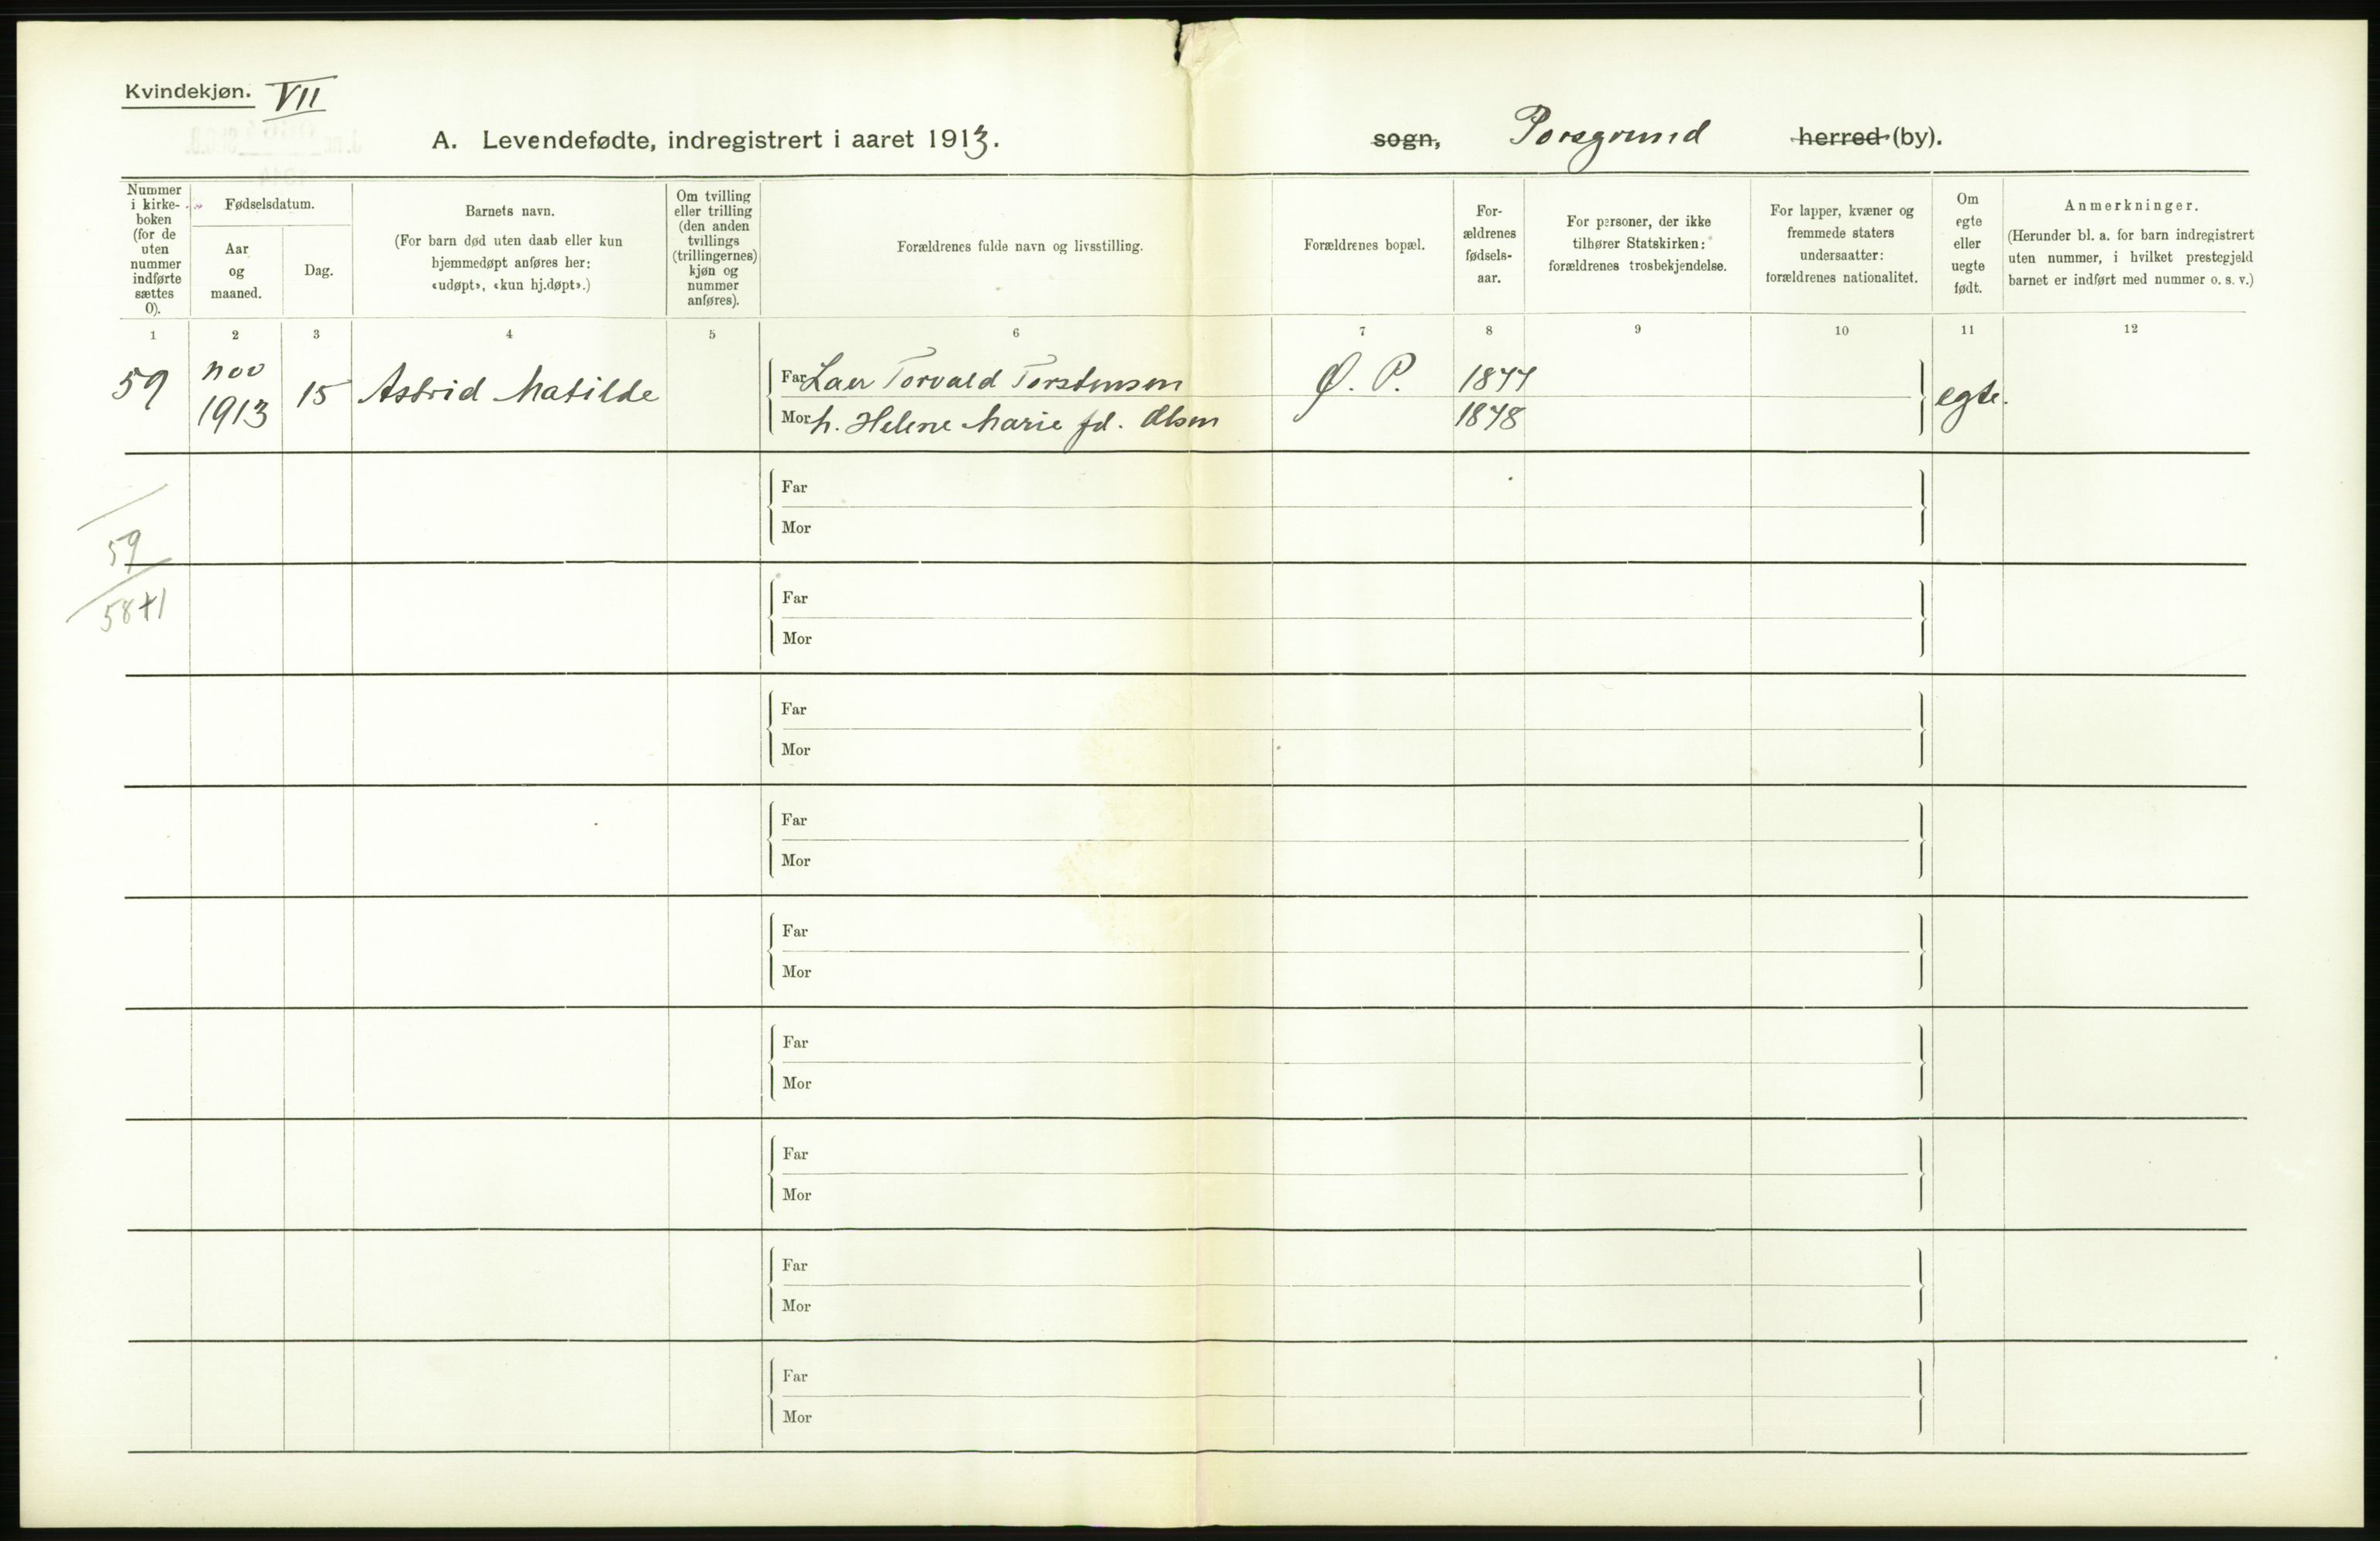 Kvindekjøn. VII
A. Levendefødte, indregistrert i aaret 1913. sogn, Porsgrund herred (by).
Nummer
i kirke-
boken
(for de
uten
nummer
indførte
sættes
0).
Fødselsdatum.
Aar
og
maaned.
Dag.
Barnets navn.
(For barn død uten daab eller kun
hjemmedøpt anføres her:
«udøpt», «kun hj.døpt».)
Om tvilling
eller trilling
(den anden
tvillings
(trillingernes)
kjøn og
nummer
anføres).
Forældrenes fulde navn og livsstilling.
Forældrenes bopæl.
For-
ældrenes
fødsels-
aar.
For personer, der ikke
tilhører Statskirken:
forældrenes trosbekjendelse.
For lapper, kvæner og
fremmede staters
undersaatter:
forældrenes nationalitet.
Om
egte
eller
uegte
født.
Anmerkninger.
(Herunder bl. a. for barn indregistrert
uten nummer, i hvilket prestegjeld
barnet er indført med nummer o. s. v.)
1 2 3 4 5 6 7 8 9 10 11 12
59 nov 1913 15 Astrid Matilde
Far Torvald Torstensen Ø. P. 1877 egte.
Mor h. Helene Marie fd. Olsen 1878
Far
Mor
59
58+1
Far
Mor
Far
Mor
Far
Mor
Far
Mor
Far
Mor
Far
Mor
Far
Mor
Far
Mor